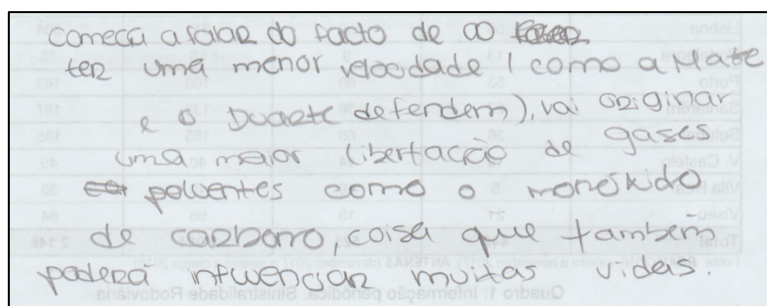 começa a falar do facto de ao
ter uma menor velocidade (como a Mate
e o Duarte defendem), vai originar
uma maior libertação de gases
poluentes como o monóxido
de carbono, coisa que também
poderá influenciar muitas vidas.